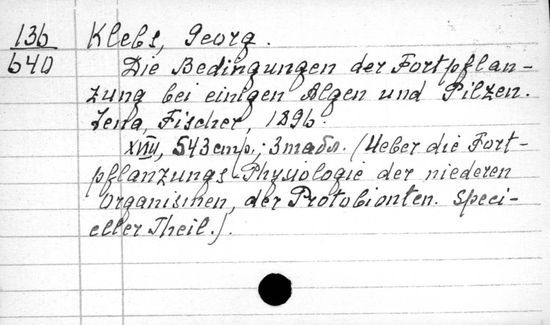 136
640
Klebs, Georg.
Die Bedingungen der Fortpflan-
zung bei einigen Algen und Pilzen.
Jena, Fischer, 1896.
XVIII, 543 стр.; 3 табл. (Ueber die Fort-
pflanzungs-Physiologie der niederen
Organismen, der Protobionten. Speci-
eller Theil.).